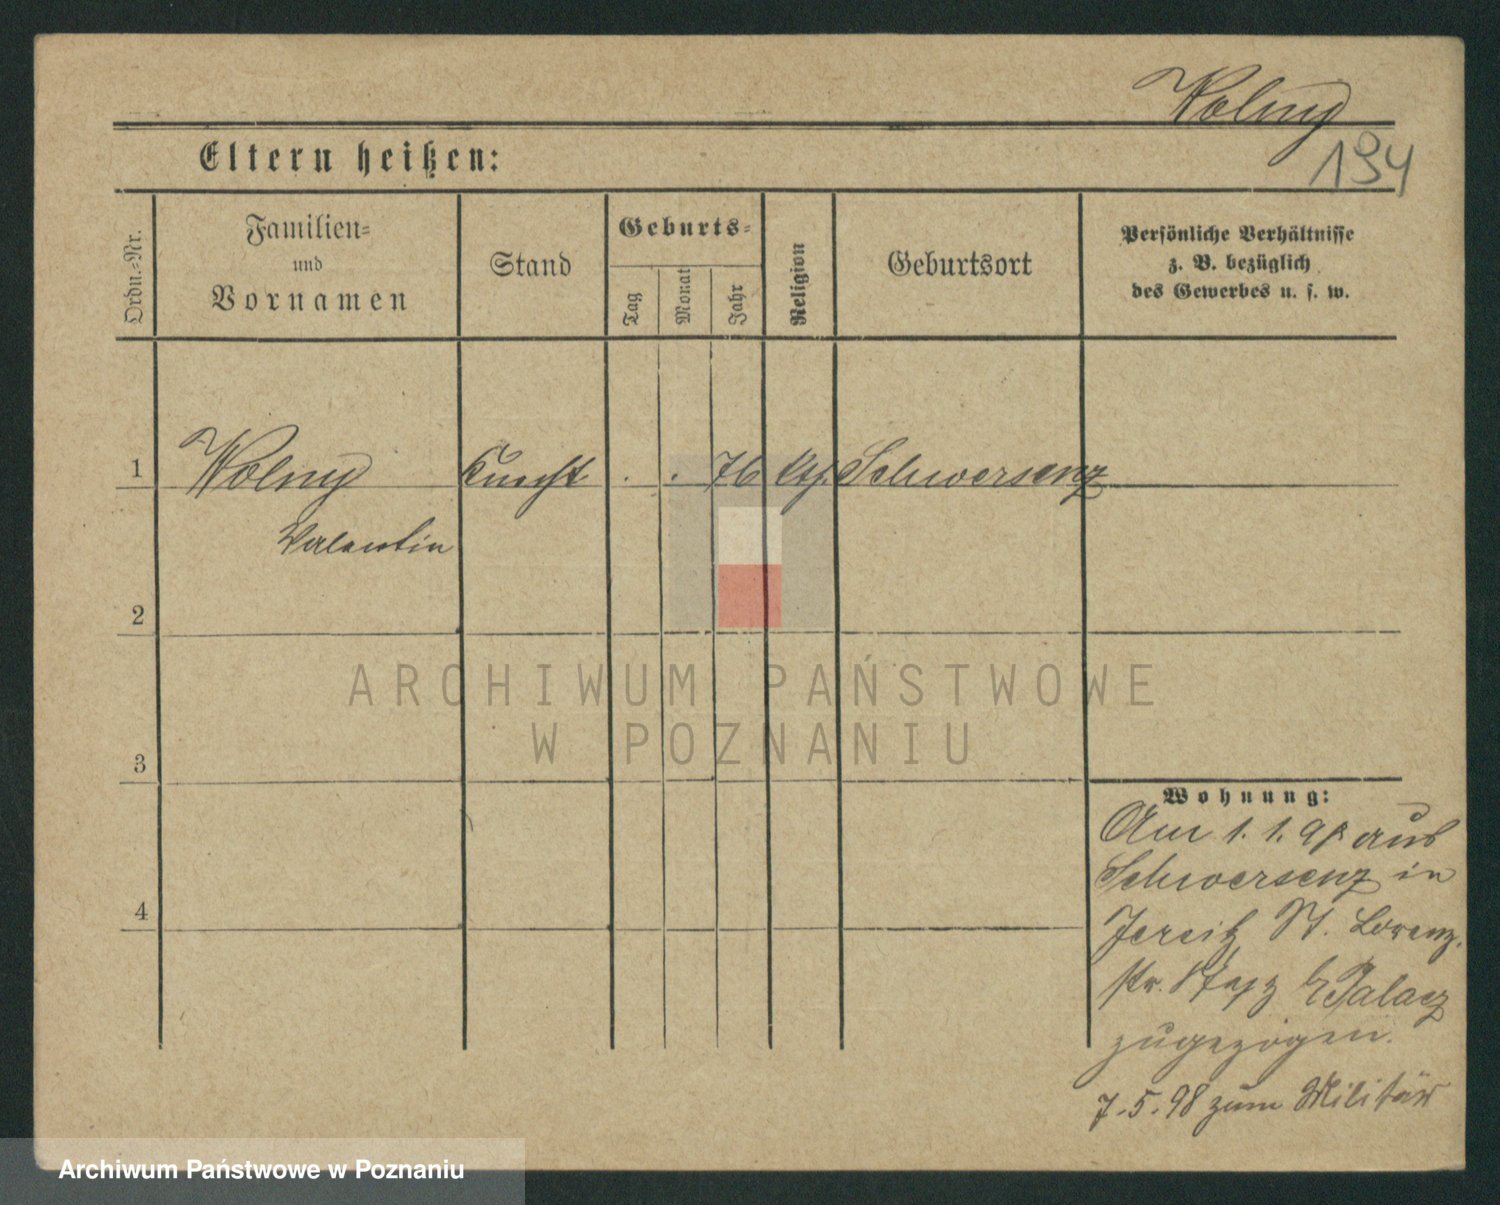 Wolny
194
Eltern heißen:
Ordn.-Nr.
Familien-
und
Vornamen
Stand
Geburts-
Tag
Monat
Jahr
Religion
Geburtsort
Persönliche Verhältnisse
z. B. bezüglich
des Gewerbes u. s. w.
1
Wolny
Knecht
. . 76
kth.
Schwersenz
Valentin
2
3
4
Wohnung:
Am 1. 1. 98 aus
Schwersenz in
Jersitz St. Lorenz
str. Palacz
zugezogen.
7.5.98 zum Militär
ARCHIWUM PAŃSTWOWE
W POZNANIU
Archiwum Państwowe w Poznaniu